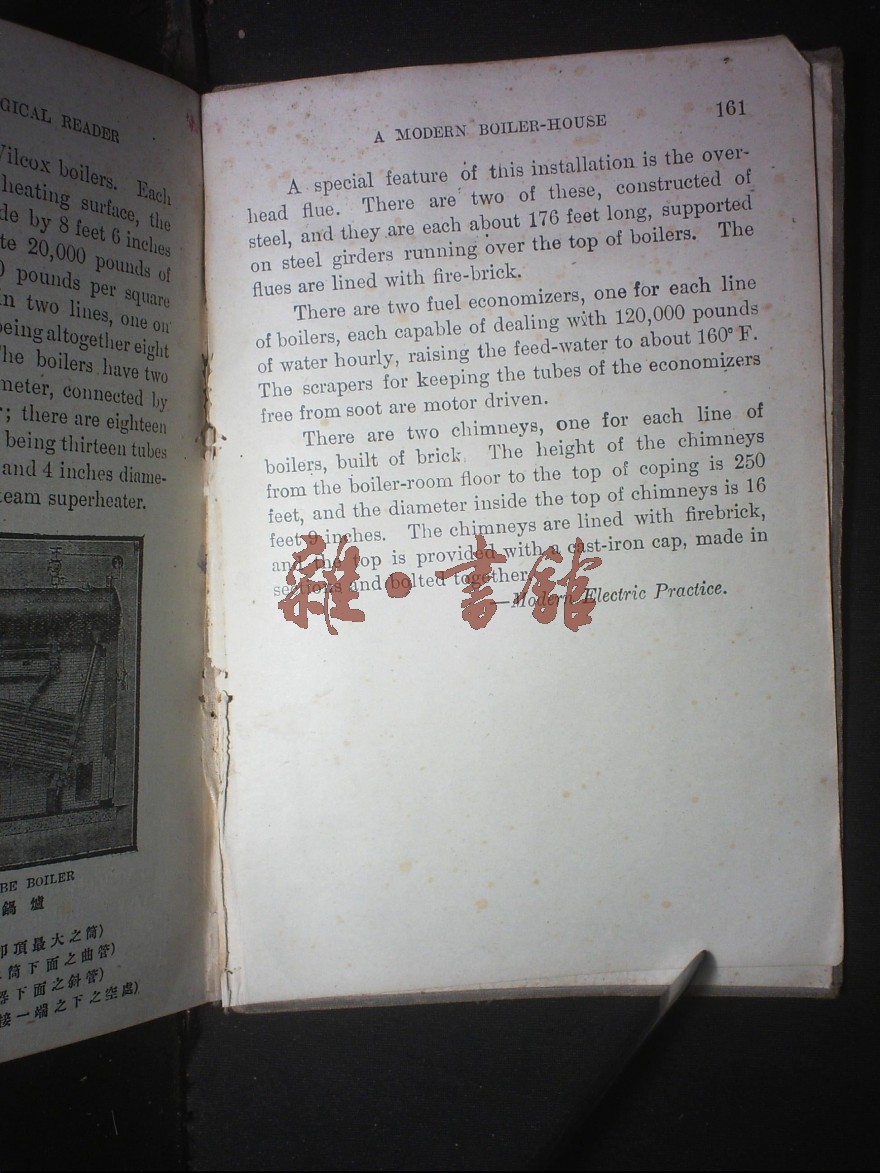 GICAL READER
Wilcox boilers. Each
heating surface, the
by 8 feet 6 inches
20,000 pounds of
pounds per square
in two lines, one on
being altogether eight
The boilers have two
connected by
; there are eighteen
being thirteen tubes
and 4 inches diame-
superheater.
BE BOILER
鍋爐
頂最大之筒)
筒下面之曲管)
下面之斜管)
接一端之下之空處)
A MODERN BOILER-HOUSE
161
A special feature of this installation is the over-
head flue. There are two of these, constructed of
steel, and they are each about 176 feet long, supported
on steel girders running over the top of boilers. The
flues are lined with fire-brick.
There are two fuel economizers, one for each line
of boilers, each capable of dealing with 120,000 pounds
of water hourly, raising the feed-water to about 160° F.
The scrapers for keeping the tubes of the economizers
free from soot are motor driven.
There are two chimneys, one for each line of
boilers, built of brick. The height of the chimneys
from the boiler-room floor to the top of coping is 250
feet, and the diameter inside the top of chimneys is 16
feet 9 inches. The chimneys are lined with firebrick,
and the top is provided with a cast-iron cap, made in
sections and bolted together.
—Modern Electric Practice.
雜·書館